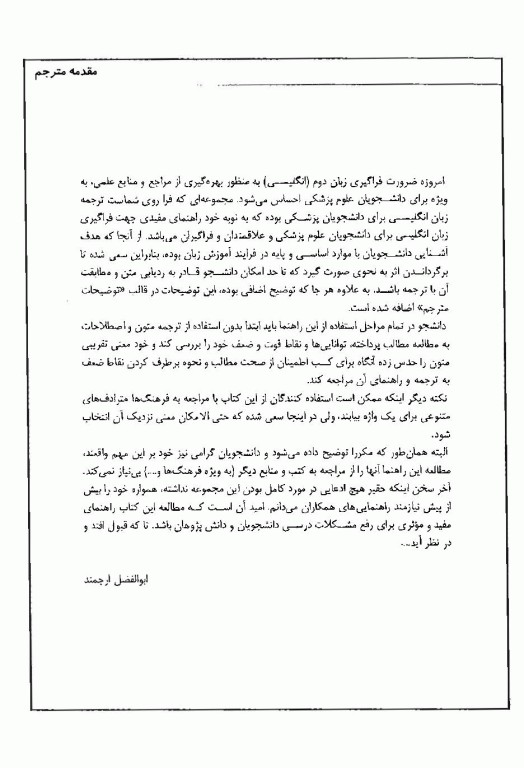 مقدمه مترجم
امروزه ضرورت فراگیری زبان دوم (انگلیسی) به منظور بهره‌گیری از مراجع و منابع علمی، به
ویژه برای دانشجویان علوم پزشکی احساس می‌شود. مجموعه‌ای که فرا روی شماست ترجمه
زبان انگلیسی برای دانشجویان پزشکی بوده که به نوبه خود راهنمای مفیدی جهت فراگیری
زبان انگلیسی برای دانشجویان علوم پزشکی و علاقمندان و فراگیران می‌باشد. از آنجا که هدف
آشنایی دانشجویان با موارد اساسی و پایه در فرایند آموزش زبان بوده، بنابراین سعی شده تا
برگرداندن اثر به نحوی صورت گیرد که تا حد امکان دانشجو قادر به ردیابی متن و مطابقت
آن با ترجمه باشد. به علاوه هر جا که توضیح اضافی بوده، این توضیحات در قالب «توضیحات
مترجم» اضافه شده است.
دانشجو در تمام مراحل استفاده از این راهنما باید ابتدا بدون استفاده از ترجمه متون و اصطلاحات
به مطالعه مطالب پرداخته، توانایی‌ها و نقاط قوت و ضعف خود را بررسی کند و خود معنی تقریبی
متون را حدس زده آنگاه برای کسب اطمینان از صحت مطالب و نحوه برطرف کردن نقاط ضعف
به ترجمه و راهنمای آن مراجعه کند.
نکته دیگر اینکه ممکن است استفاده کنندگان از این کتاب با مراجعه به فرهنگ‌ها مترادف‌های
متنوعی برای یک واژه بیابند، ولی در اینجا سعی شده که حتی الامکان معنی نزدیک آن انتخاب
شود.
البته همان‌طور که مکررا توضیح داده می‌شود و دانشجویان گرامی نیز خود بر این مهم واقفند،
مطالعه این راهنما آنها را از مراجعه به کتب و منابع دیگر (به ویژه فرهنگ‌ها و...) بی‌نیاز نمی‌کند.
آخر سخن اینکه حقیر هیچ ادعایی در مورد کامل بودن این مجموعه نداشته، همواره خود را بیش
از پیش نیازمند راهنمایی‌های همکاران می‌دانم. امید آن است که مطالعه این کتاب راهنمای
مفید و مؤثری برای رفع مشکلات درسی دانشجویان و دانش پژوهان باشد. تا که قبول افتد و
در نظر آید...
ابوالفضل ارجمند